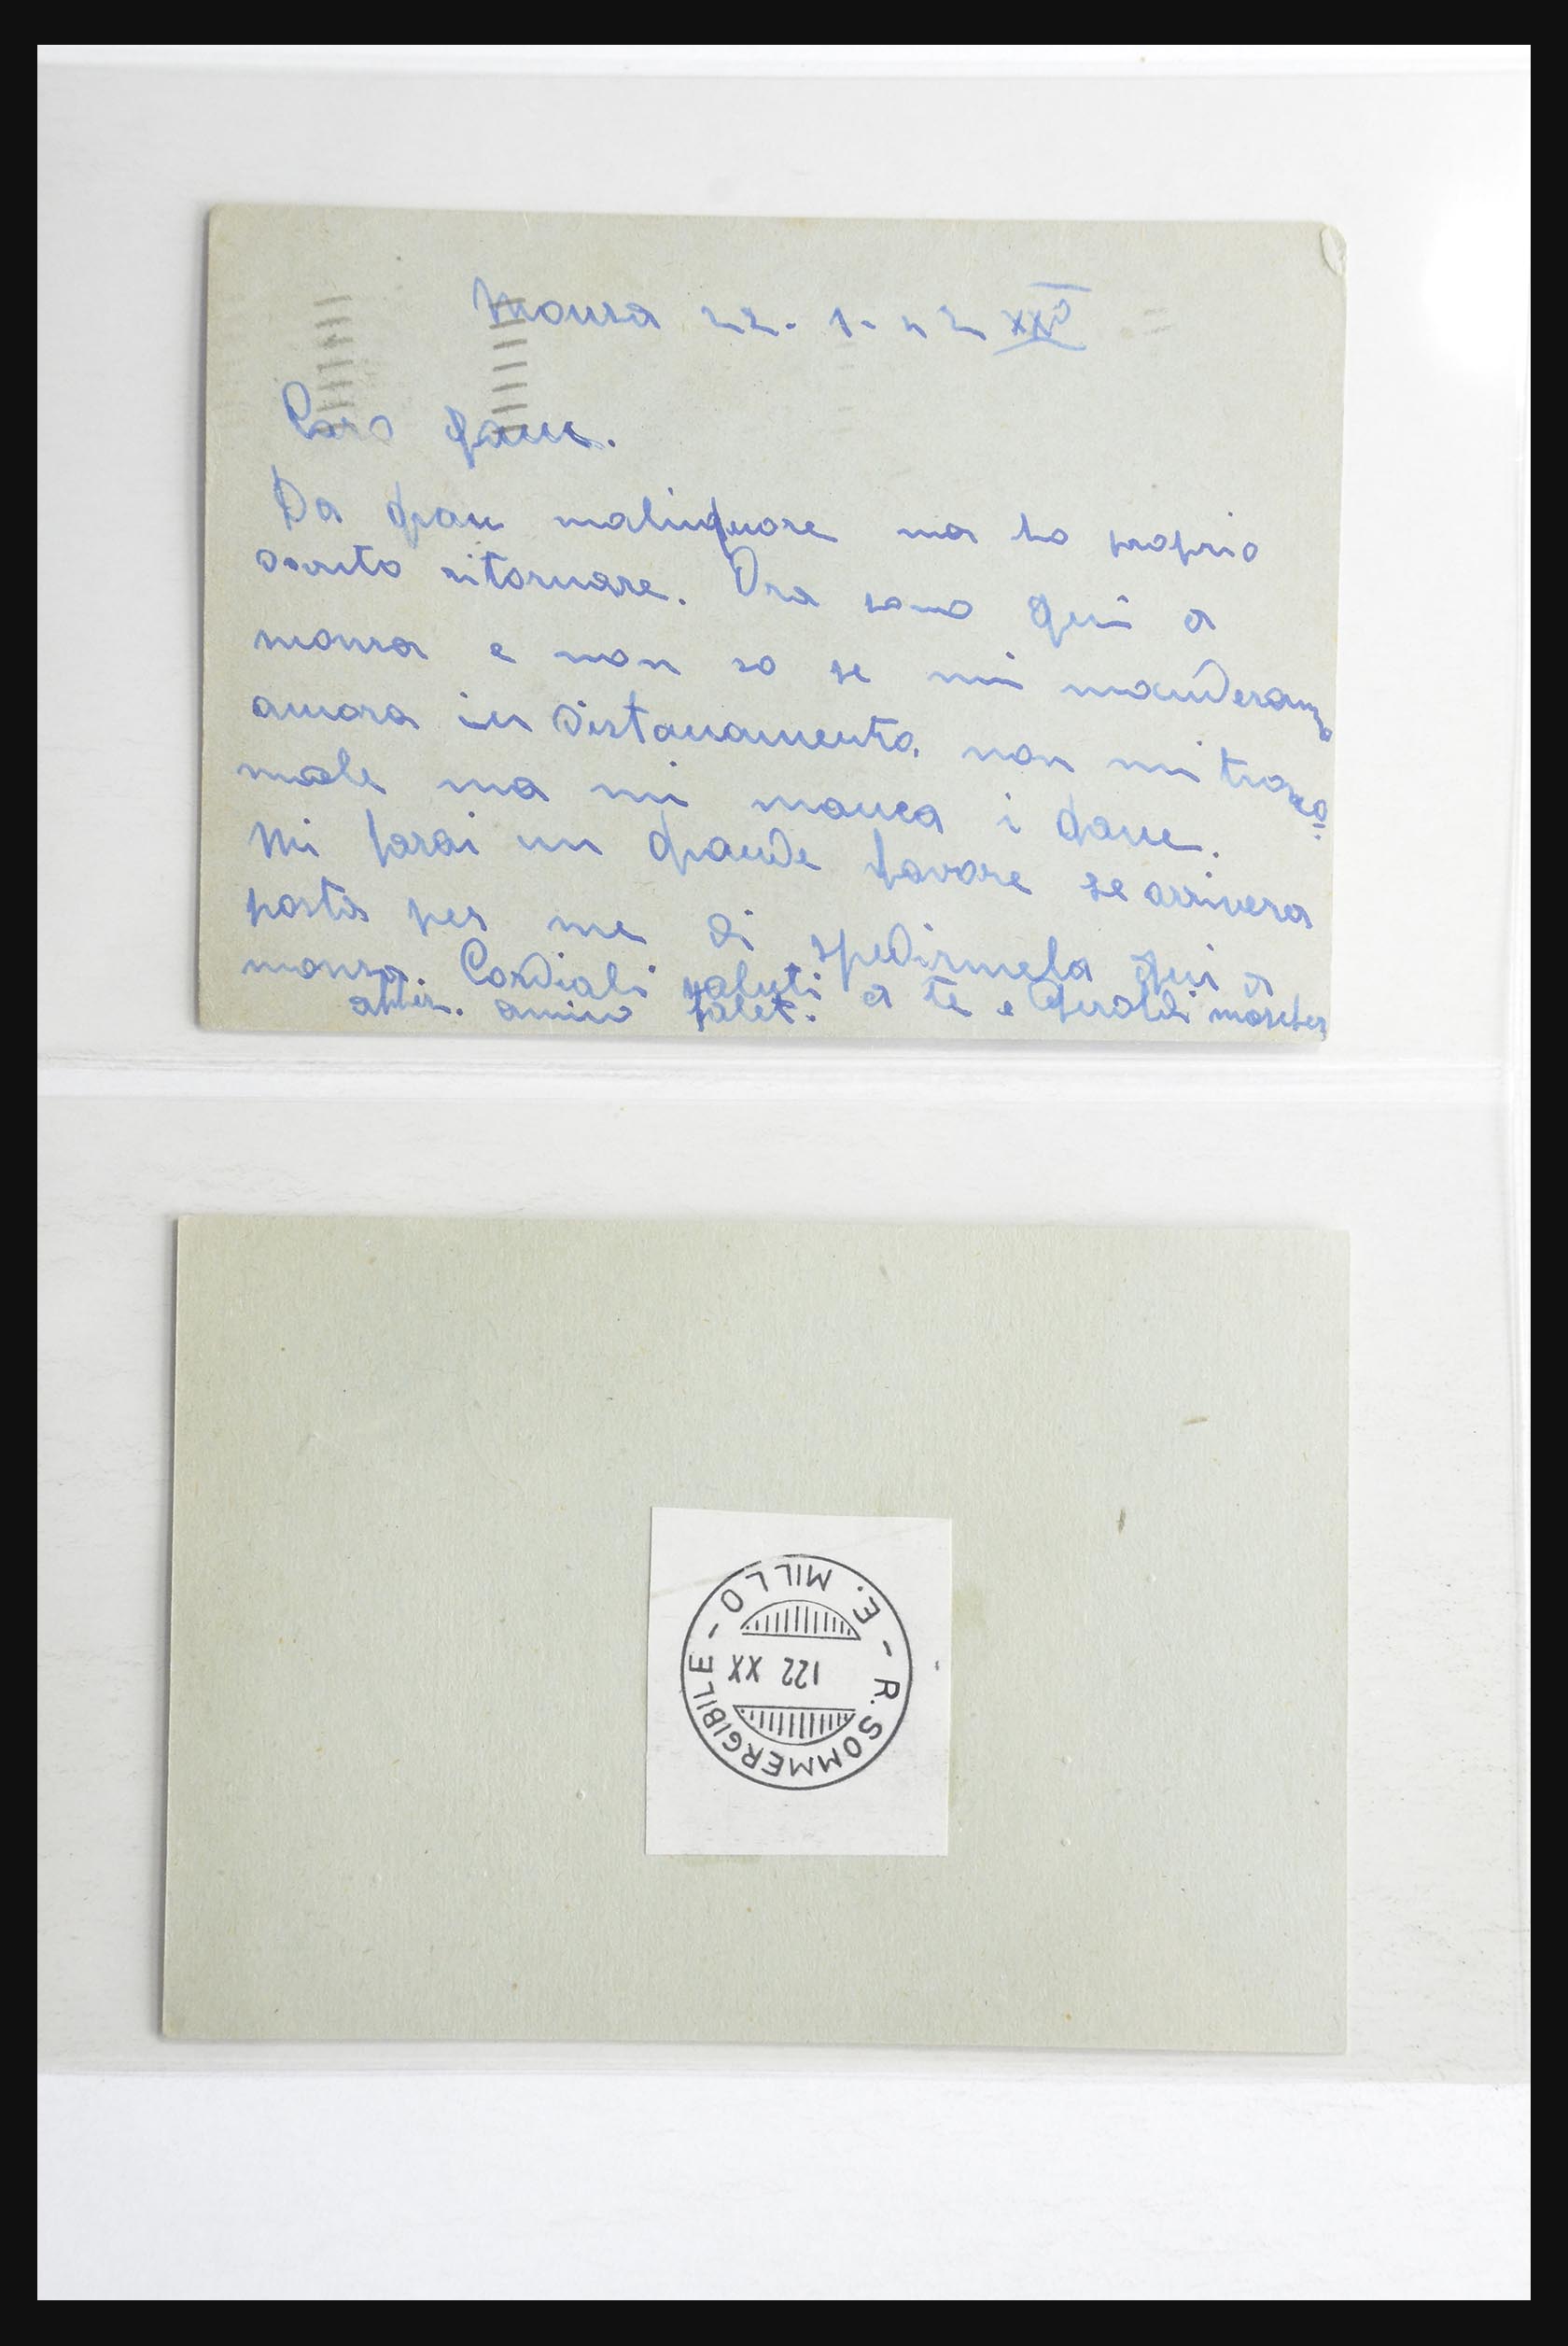 Monza 22. 1. 42 XX°
Caro
Da gran malinquore ma ho proprio
dovuto ritornare. Ora sono qui a
monza e non so se mi manderanno
ancora in distaccamento. non mi trovo
male ma mi manca i
Mi farai un grande favore se arrivera
posta per me di spedirmela qui a
monza. Cordiali saluti a te e
amico
R. SOMMERGIBILE - E. MILLO -
122 XX